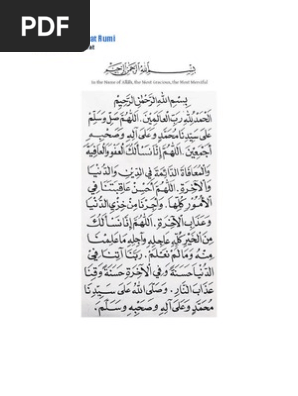 PDF
at Rumi
بِسْمِ اللهِ الرَّحْمٰنِ الرَّحِيْمِ
In the Name of Allah, the Most Gracious, the Most Merciful
بِسْمِ اللهِ الرَّحْمٰنِ الرَّحِيْمِ
اَلْحَمْدُ لِلّٰهِ رَبِّ الْعَالَمِيْنَ. اَللّٰهُمَّ صَلِّ وَسَلِّمْ
عَلَى سَيِّدِنَا مُحَمَّدٍ وَعَلَى آلِهِ وَصَحْبِهِ
أَجْمَعِيْنَ. اَللّٰهُمَّ إِنَّا نَسْأَلُكَ الْعَفْوَ وَالْعَافِيَةَ
وَالْمُعَافَاةَ الدَّائِمَةَ فِي الدِّيْنِ وَالدُّنْيَا
وَالْآخِرَةِ. اَللّٰهُمَّ أَحْسِنْ عَاقِبَتَنَا فِي
الْأُمُوْرِ كُلِّهَا. وَأَجِرْنَا مِنْ خِزْيِ الدُّنْيَا
وَعَذَابِ الْآخِرَةِ. اَللّٰهُمَّ إِنَّا نَسْأَلُكَ
مِنَ الْخَيْرِ كُلِّهِ عَاجِلِهِ وَآجِلِهِ مَا عَلِمْنَا
مِنْهُ وَمَا لَمْ نَعْلَمْ. رَبَّنَا آتِنَا فِي
الدُّنْيَا حَسَنَةً وَفِي الْآخِرَةِ حَسَنَةً وَقِنَا
عَذَابَ النَّارِ. وَصَلَّى اللهُ عَلَى سَيِّدِنَا
مُحَمَّدٍ وَعَلَى آلِهِ وَصَحْبِهِ وَسَلَّمَ.